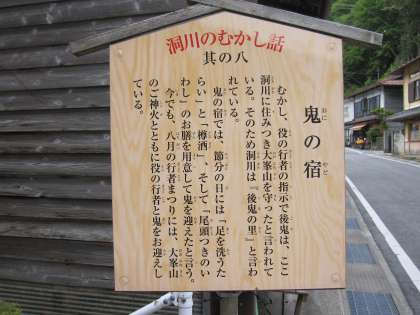 洞川のむかし話
其の八
鬼の宿
おに
やど
むかし、役の行者の指示で後鬼は、ここ
洞川に住みつき大峯山を守ったと言われて
いる。そのため洞川は『後鬼の里』と言わ
れている。
鬼の宿では、節分の日には「足を洗うた
らい」と「樽酒」、そして「尾頭つきのい
わし」のお膳を用意して鬼を迎えたと言う。
今でも、八月の行者まつりには、大峯山
のご神火とともに役の行者と鬼をお迎えし
ている。